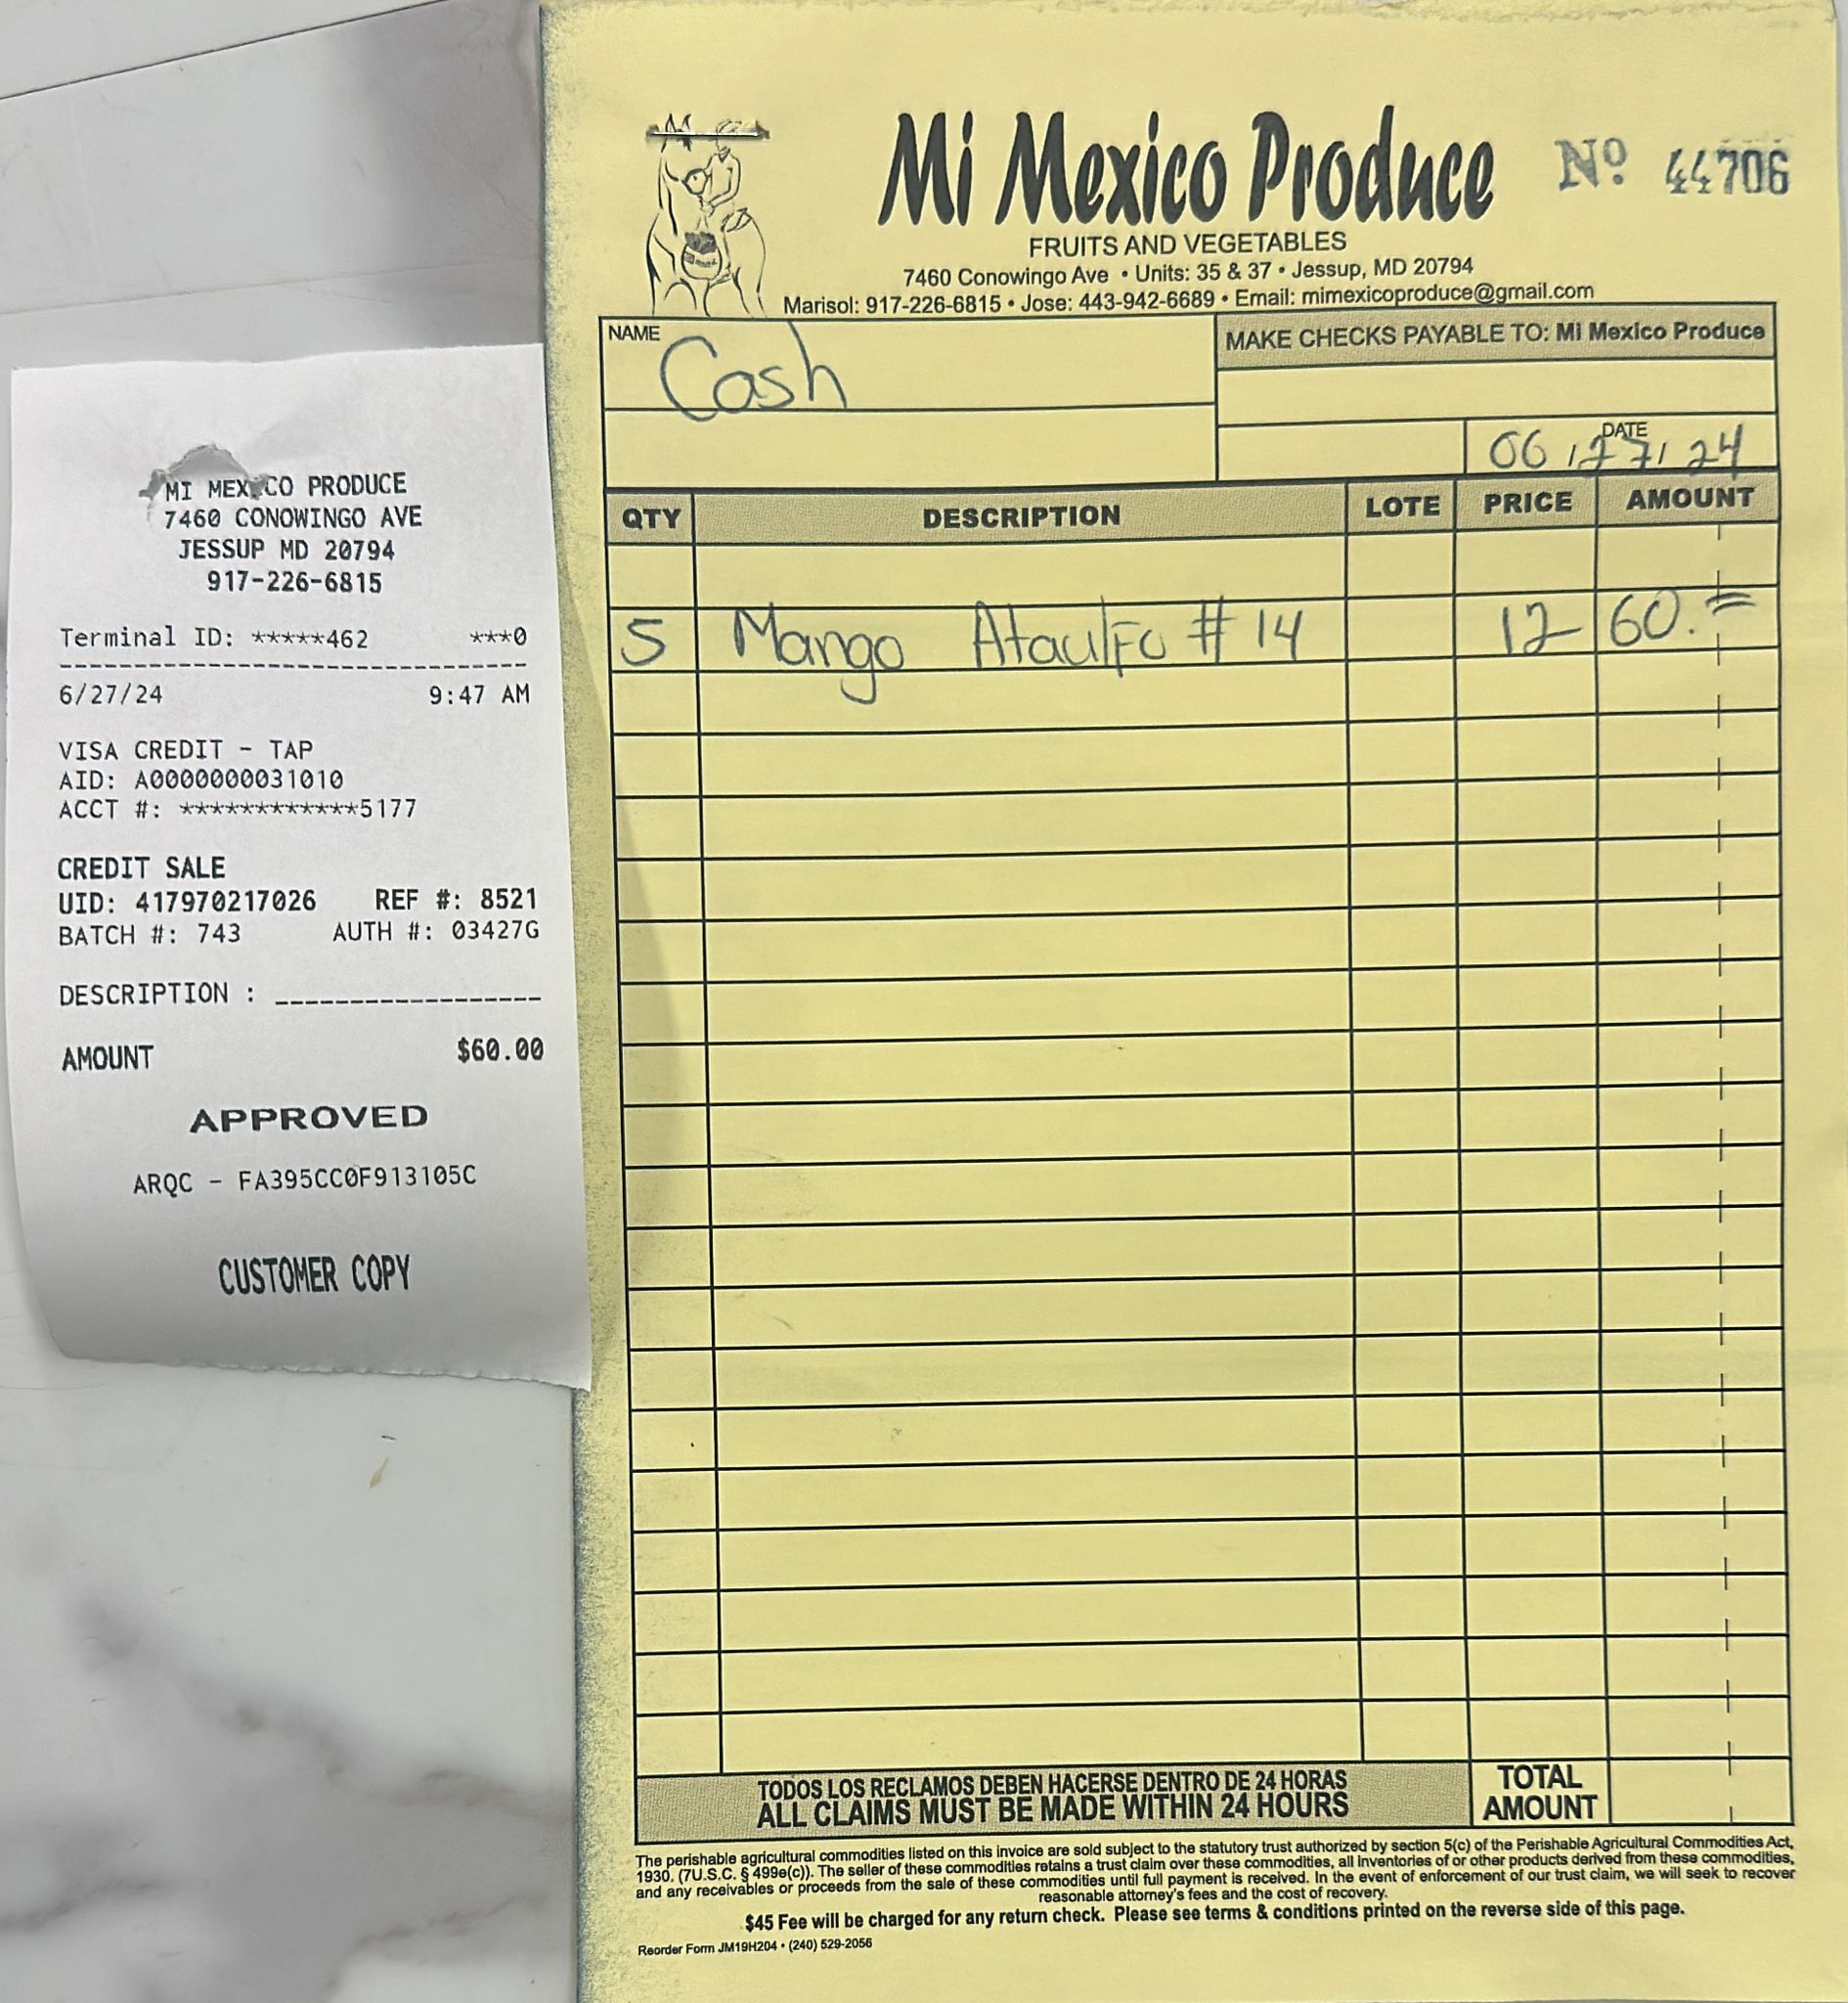 MI MEXICO PRODUCE
7460 CONOWINGO AVE
JESSUP MD 20794
917-226-6815
Terminal ID: *****462 ***0
--------------------------------
6/27/24 9:47 AM
VISA CREDIT - TAP
AID: A0000000031010
ACCT #: ************5177
CREDIT SALE
UID: 417970217026 REF #: 8521
BATCH #: 743 AUTH #: 03427G
DESCRIPTION : __________________
AMOUNT $60.00
APPROVED
ARQC - FA395CC0F913105C
CUSTOMER COPY
Mi Mexico Produce Nº 44706
FRUITS AND VEGETABLES
7460 Conowingo Ave • Units: 35 & 37 • Jessup, MD 20794
Marisol: 917-226-6815 • Jose: 443-942-6689 • Email: mimexicoproduce@gmail.com
NAME Cash
MAKE CHECKS PAYABLE TO: Mi Mexico Produce
DATE 06/27/24
QTY DESCRIPTION LOTE PRICE AMOUNT
5 Mango Ataulfo #14 12- 60.=
TODOS LOS RECLAMOS DEBEN HACERSE DENTRO DE 24 HORAS
ALL CLAIMS MUST BE MADE WITHIN 24 HOURS
TOTAL
AMOUNT
The perishable agricultural commodities listed on this invoice are sold subject to the statutory trust authorized by section 5(c) of the Perishable Agricultural Commodities Act,
1930. (7U.S.C. § 499e(c)). The seller of these commodities retains a trust claim over these commodities, all inventories of or other products derived from these commodities,
and any receivables or proceeds from the sale of these commodities until full payment is received. In the event of enforcement of our trust claim, we will seek to recover
reasonable attorney's fees and the cost of recovery.
$45 Fee will be charged for any return check. Please see terms & conditions printed on the reverse side of this page.
Reorder Form JM19H204 • (240) 529-2056